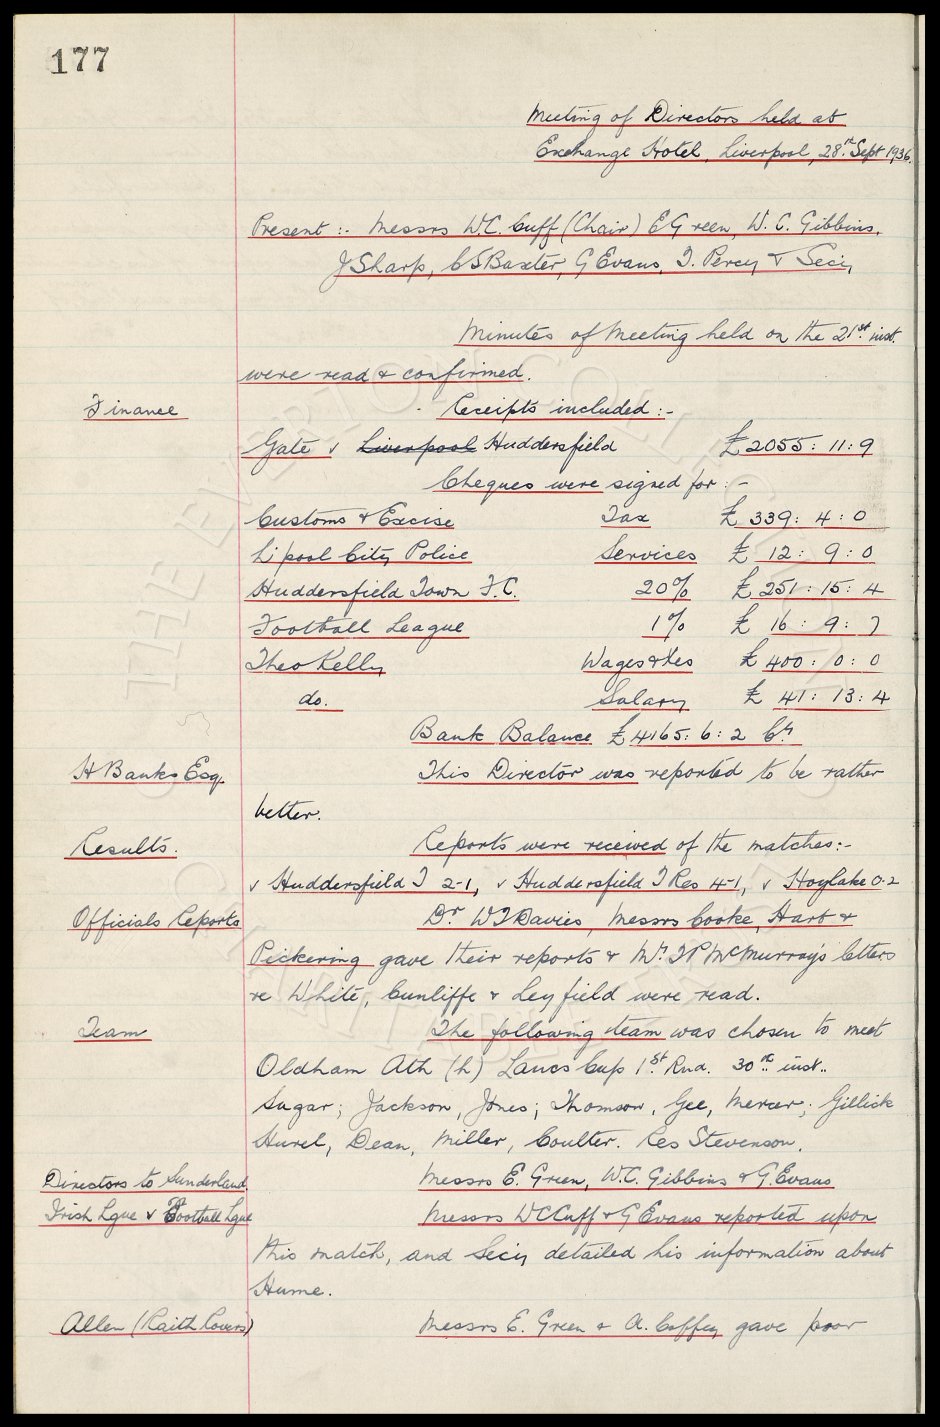 177
Meeting of Directors held at
Exchange Hotel, Liverpool, 28th Sept 1936.
Present :- Messrs W.C. Cuff (Chair) E Green, W. C. Gibbins,
J Sharp, C S Baxter, G Evans, T. Percy & Secy
Minutes of Meeting held on the 21st inst.
were read & confirmed.
Finance Receipts included :-
Gate v Liverpool Huddersfield £2055: 11: 9
Cheques were signed for :-
Customs & Excise Tax £ 339: 4: 0
L'pool City Police Services £ 12: 9: 0
Huddersfield Town F.C. 20% £ 251: 15: 4
Football League 1% £ 16: 9: 7
Theo Kelly Wages & Xes £ 400: 0: 0
do. Salary £ 41: 13: 4
Bank Balance £4165: 6: 2 Cr
H Banks Esq. This Director was reported to be rather
better.
Results. Reports were received of the matches:-
v Huddersfield T 2-1, v Huddersfield T Res 4-1, v Hoylake 0-2
Officials Reports Dr W T Davies, Messrs Cooke, Hart &
Pickering gave their reports & Mr. T P McMurray's letters
re White, Cunliffe & Leyfield were read.
Team The following team was chosen to meet
Oldham Ath (h) Lancs Cup 1st Rnd. 30th inst..
Sagar; Jackson, Jones; Thomson, Gee, Mercer; Gillick
Hurel, Dean, Miller, Coulter. Res Stevenson.
Directors to Sunderland. Messrs E. Green, W.C. Gibbins & G. Evans
Irish Lgue v Football Lgue Messrs W C Cuff & G Evans reported upon
this match, and Secy detailed his information about
Hume.
Allen (Raith Rovers) Messrs E. Green & A. Coffey gave poor
THE EVERTON COLLECTION
CHARITABLE TRUST